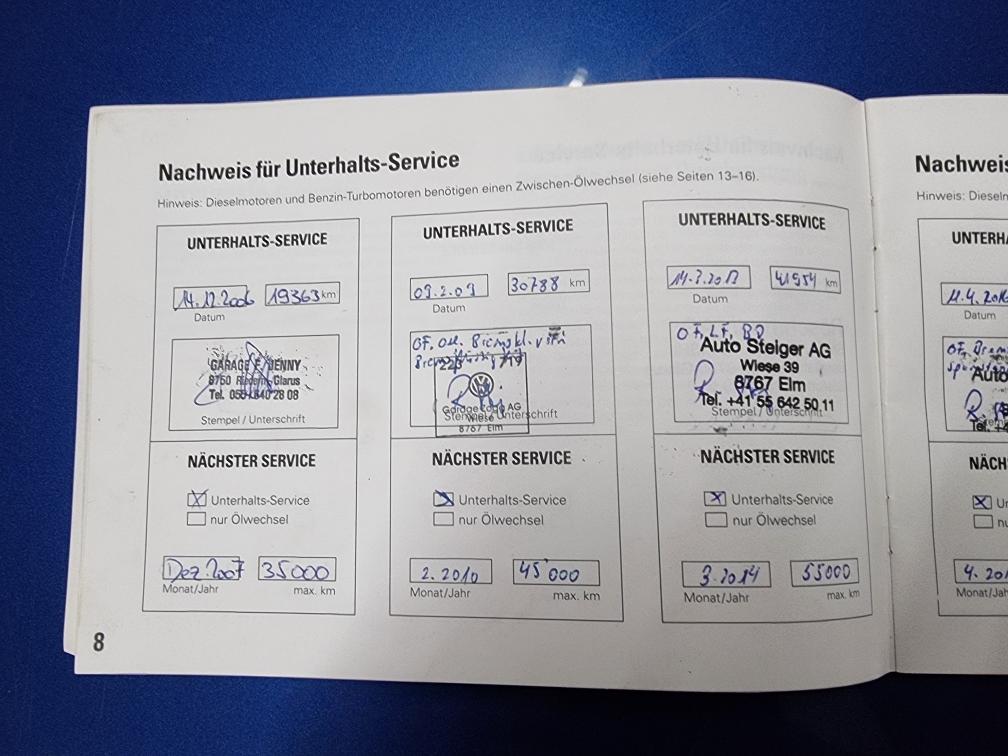 Nachweis für Unterhalts-Service
Hinweis: Dieselmotoren und Benzin-Turbomotoren benötigen einen Zwischen-Ölwechsel (siehe Seiten 13–16).
UNTERHALTS-SERVICE
14.12.2006 19363 km
Datum
GARAGE F. JENNY
8750 Riedern-Glarus
Tel. 055 640 28 08
Stempel / Unterschrift
NÄCHSTER SERVICE
Unterhalts-Service
nur Ölwechsel
Dez. 2007 35000
Monat/Jahr max. km
UNTERHALTS-SERVICE
09.2.09 30788 km
Datum
Stempel / Unterschrift
Wiese
8767 Elm
NÄCHSTER SERVICE
Unterhalts-Service
nur Ölwechsel
2.2010 45'000
Monat/Jahr max. km
UNTERHALTS-SERVICE
41954 km
Datum
OF, LF,
Auto Steiger AG
Wiese 39
8767 Elm
Tel. +41 55 642 50 11
Stempel / Unterschrift
NÄCHSTER SERVICE
Unterhalts-Service
nur Ölwechsel
3.2014 55000
Monat/Jahr max. km
8
Nachweis
Hinweis: Dieseln
UNTERHA
11.4.2016
Datum
Auto
NÄCH
Un
nu
4.201
Monat/Jah